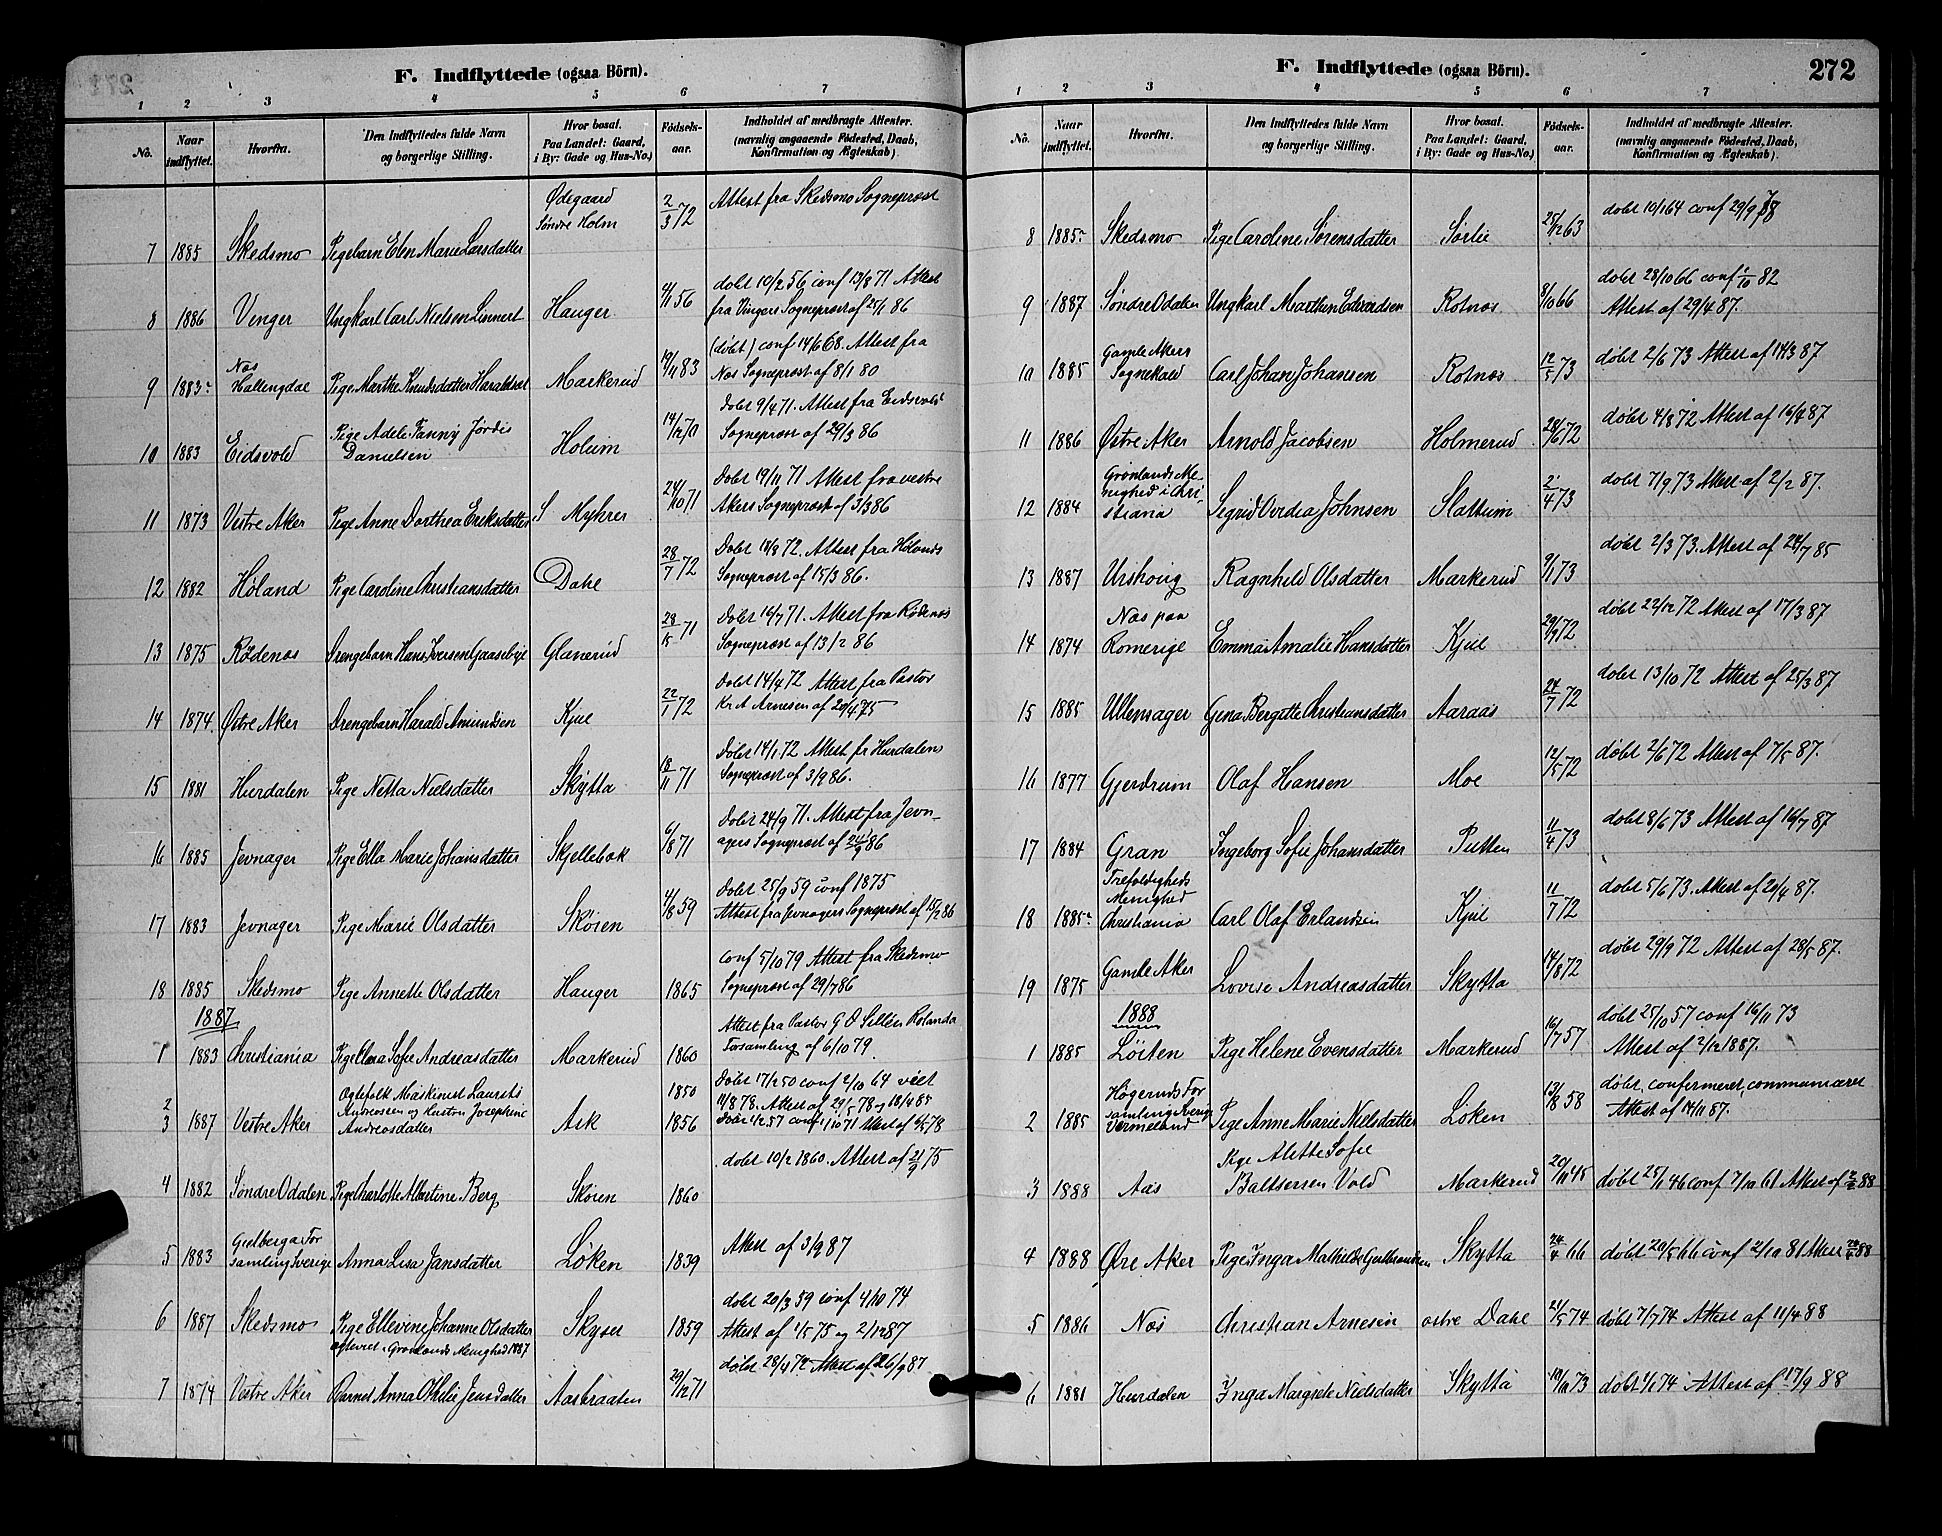 F. Indflyttede (ogsaa Börn).
1 2 3 4 5 6 7
No.
Naar indflyttet.
Hvorfra.
Den Indflyttedes fulde Navn
og borgerlige Stilling.
Hvor bosat.
Paa Landet: Gaard,
i By: Gade og Hus-No.)
Födsels-
aar.
Indholdet af medbragte Attester.
(navnlig angaaende Födested, Daab,
Konfirmation og Ægteskab).
Ødegaard
Søndre Holm 2/3 72 Attest fra Skedsmo Sogneprest
7 1885 Skedsmo Pigebarn Elen Marie Larsdatter
døbt 10/2 56 conf 13/8 71 Attest
8 1886 Vinger Ungkarl Carl Nielsen Linnert Hauger 4/1 56 fra Vingers Sogneprest af 25/1 86
(døbt) conf 14/6 68. Attest fra
9 1883 Nas Hallengdal Pige Marthe Knudsdatter Haraldset Markerud 19/11 83 Nas Sogneprest af 8/1 80
Døbt 9/4 71. Attest fra Eidsvold
10 1883 Eidsvold Pige Adele Fanny Jørdis
Danielsen Holum 14/12 70 Sogneprest af 29/3 86
Døbt 19/11 71 Attest fra vestre
11 1873 Vestre Aker Pige Anne Dorthea Eriksdatter S Myhrer 24/10 71 Akers Sogneprest af 3/3 86
Døbt 18/8 72. Attest fra Hølands
12 1882 Høland Pige Caroline Christiansdatter Dahl 28/7 72 Sogneprest af 15/3 86.
Døbt 16/7 71. Attest fra Rødenæs
13 1875 Rødenæs Drengebarn Hans Iversen Gaasebye Glanerud 28/5 71 Sogneprest af 13/2 86
Døbt 14/4 72 Attest fra Pastor
14 1874. Østre Aker Drengebarn Harald Amundsen Kjul 22/1 72 Kr A Arnesen af 20/4 75
Døbt 14/1 72 Attest fr Hurdalens
15 1881 Hurdalen Pige Netta Nielsdatter Skytta 18/11 71 Sogneprest af 3/9 86.
Døbt 24/9 71. Attest fra Jevn-
16 1885 Jevnager Pige Ella Marie Johansdatter Skjellebæk 6/8 71 agers Sogneprest af 24/9 86
Døbt 25/9 59 conf 1875
17 1883 Jevnager Pige Marie Olsdatter Skøien 4/8 59 Attest fra Jevnagers Sogneprest af 15/2 86
conf 5/10 79 Attest fra Skedsmo
18 1885 Skedsmo Pige Annette Olsdatter Hauger 1865 Sogneprest af 29/7 86
1887
Attest fra Pastor G O Sellén Rolanda
1 1883 Christiania Pige Clara Sofie Andreasdatter Markerud 1860 Forsamling af 6/10 79.
2 Ægtefolk Maskinest Laurits 1850 Døbt 17/2 50 conf 2/10 64 viet
Andreasen og Kustru Josephine 11/8 78. Attest af 29/5 78 og 18/4 85
3 1887 Vestre Aker Andreasdatter Ask 1856 Døbt 1/2 57 conf 1/10 71 Attest af 4/5 78
døbt 10/2 1860. Attest af 21/9 75
4 1882 Søndre Odalen Pige Charlotte Albertine Berg Skøien 1860
5 1883 Gielberga For
samling Sverige Anna Lisa Jansdatter Løken 1839 Attest af 3/9 87
døbt 20/3 59 conf 4/10 74
6 1887 Skedsmo Pige Ellevine Johanne Olsdatter Skyset 1859 Attest af 1/5 75 og 2/12 87
Grønlands Menighed 1887
døbt 28/4 72 Attest af 26/9 87
7 1874 Vestre Aker Barnet Anna Othilie Jensdatter Aasbraaten 29/12 71
F. Indflyttede (ogsaa Börn). 272
1 2 3 4 5 6 7
No.
Naar indflyttet.
Hvorfra.
Den Indflyttedes fulde Navn
og borgerlige Stilling.
Hvor bosat.
Paa Landet: Gaard,
i By: Gade og Hus-No.)
Födsels-
aar.
Indholdet af medbragte Attester.
(navnlig angaaende Födested, Daab,
Konfirmation og Ægteskab).
8 1885 Skedsmo Pige Caroline Sørensdatter Sørlie 25/12 63 døbt 10/1 64 conf 29/9 78
døbt 28/10 66 conf 1/10 82
9 1887 Søndre Odalen Ungkarl Marthin Edvardsen Rotnæs 8/10 66 Attest af 29/4 87.
10 1885 Gamle Akers
Sognekald Carl Johan Johansen Rotnæs 12/5 73 døbt 2/6 73 Attest af 14/3 87
11 1886 Østre Aker Arnold Jacobsen Holmerud 28/6 72 døbt 4/8 72 Attest af 16/4 87
12 1884 Grønlands Me-
nighed i Chri-
stiania Sigrid Ovidia Johnsen Slattum 2/4 73 døbt 7/9 73 Attest af 2/2 87.
13 1887 Urskoug Ragnhild Olsdatter Markerud 9/1 73 døbt 2/3 73. Attest af 24/7 85
14 1874 Nas paa
Romerige Emma Amalie Hansdatter Kjul 29/9 72 døbt 22/12 72 Attest af 17/3 87
15 1885 Ullensager Gina Bergitte Christiansdatter Aaraas 24/7 72 døbt 13/10 72 Attest af 25/3 87
16 1877 Gjerdrum Olaf Hansen Moe 12/5 72 døbt 2/6 72 Attest af 7/5 87.
17 1884 Gran Ingeborg Sofie Johansdatter Putten 11/4 73 døbt 8/6 73 Attest af 16/7 87
18 1885 Trefoldigheds
Menighed
Christiania Carl Olaf Erlandsen Kjul 11/7 72 døbt 5/6 73. Attest af 20/4 87.
19 1875 Gamle Aker Lovise Andreasdatter Skytta 14/8 72 døbt 29/9 72 Attest af 28/5 87.
1888
døbt 25/10 57 conf 16/11 73
1 1885 Løiten Pige Helene Evensdatter Markerud 16/7 57 Attest af 2/12 1887.
2 1885 Högeruds For
samling Sverig
Vermeland Pige Anne Marie Nielsdatter Løken 13/8 58 døbt, confermeret, communiceret
Attest af 14/11 87.
3 1888 Aas Pige Alette Sofie
Baltsersen Vold Markerud 20/11 45 døbt 25/1 46 conf 7/10 61 Attest af 2/2 88
4 1888 Øre Aker Pige Inga Mathilde Gulbrandsen Skytta 24/4 66 døbt 20/5 66 conf 2/10 81 Attest 24/4 88
5 1886 Nas Christian Arnesen østre Dahl 21/5 74 døbt 7/7 74 Attest af 11/4 88
6 1881 Hurdalen Inga Margrete Nielsdatter Skytta 19/10 73 døbt 1/1 74 Attest af 17/9 88